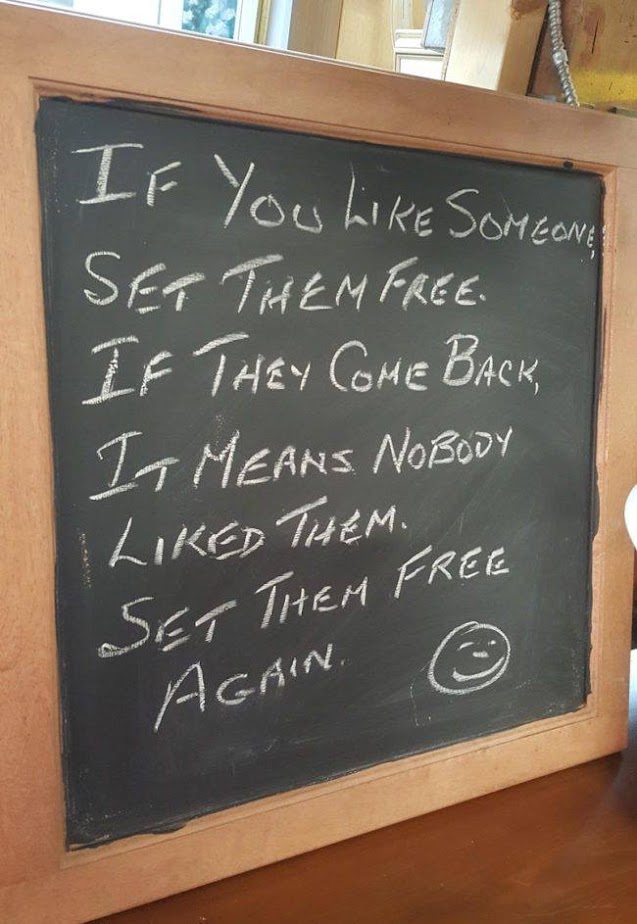 If You Like Someone,
Set Them Free.
If They Come Back,
It Means Nobody
Liked Them.
Set Them Free
Again.